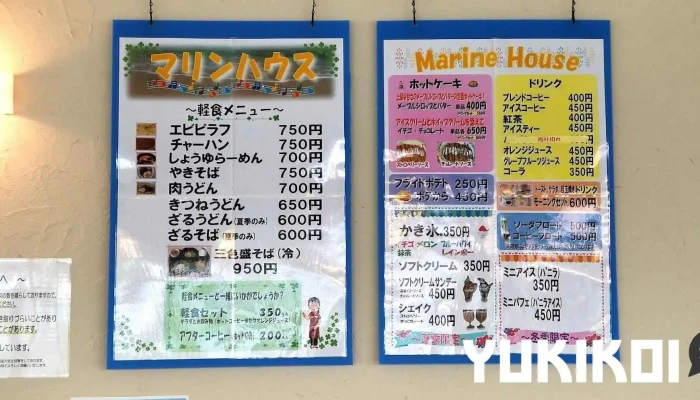 マリンハウス
～軽食メニュー～
エビピラフ 750円
チャーハン 750円
しょうゆらーめん 700円
やきそば 750円
肉うどん 700円
きつねうどん 650円
ざるうどん(夏季のみ) 600円
ざるそば(夏季のみ) 600円
三色盛そば(冷)
950円
軽食メニューと一緒にいかがでしょうか?
軽食セット 350
アフターコーヒー 200
Marine House
ホットケーキ
メープルシロップとバター 単品 400円
アイスクリームとホイップクリームを添えて
イチゴ・チョコレート 単品各 650円
フライドポテト 250円
かき氷 350円
イチゴ メロン ブルーハワイ
抹茶 レインボー
ソフトクリーム 350円
ソフトクリームサンデー
450円
シェイク
400円
ドリンク
ブレンドコーヒー 400円
アイスコーヒー 450円
紅茶 400円
アイスティー 450円
オレンジジュース 450円
グレープフルーツジュース 450円
コーラ 350円
モーニングセット 600円
ソーダフロート
コーヒーフロート
ミニアイス(バニラ)
350円
ミニパフェ(バニラアイス)
450円
～冬季限定～
YUKIKOI